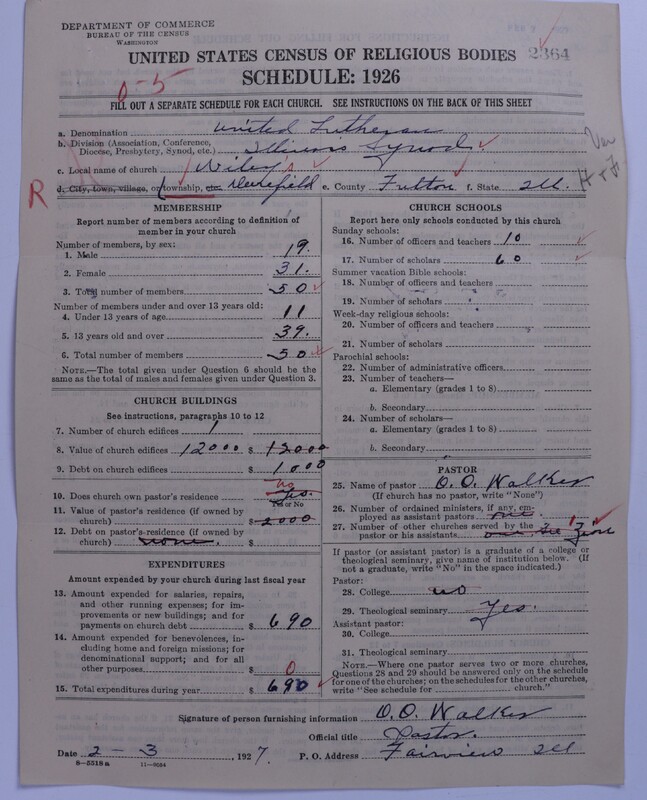 DEPARTMENT OF COMMERCE
BUREAU OF THE CENSUS
WASHINGTON
UNITED STATES CENSUS OF RELIGIOUS BODIES
2364
SCHEDULE: 1926
0-5
FILL OUT A SEPARATE SCHEDULE FOR EACH CHURCH. SEE INSTRUCTIONS ON THE BACK OF THIS SHEET
a. Denomination United Lutheran
b. Division (Association, Conference, Diocese, Presbytery, Synod, etc.) Illinois Synod
c. Local name of church Wiley's
R
d. City, town, village, or township, etc. Deerfield e. County Fulton f. State Ill.
MEMBERSHIP
Report number of members according to definition of member in your church
Number of members, by sex:
1. Male 19
2. Female 31.
3. Total number of members 50
Number of members under and over 13 years old:
4. Under 13 years of age 11
5. 13 years old and over 39.
6. Total number of members 50
NOTE.—The total given under Question 6 should be the same as the total of males and females given under Question 3.
CHURCH BUILDINGS
See instructions, paragraphs 10 to 12
7. Number of church edifices 1
8. Value of church edifices 12000 $ 12000
9. Debt on church edifices $ 1000
10. Does church own pastor's residence No Yes.
Yes or No
11. Value of pastor's residence (if owned by church) $ 2000
12. Debt on pastor's residence (if owned by church) none. $
EXPENDITURES
Amount expended by your church during last fiscal year
13. Amount expended for salaries, repairs, and other running expenses; for improvements or new buildings; and for payments on church debt $ 690
14. Amount expended for benevolences, including home and foreign missions; for denominational support; and for all other purposes $ 0
15. Total expenditures during year $ 690
CHURCH SCHOOLS
Report here only schools conducted by this church
Sunday schools:
16. Number of officers and teachers 10
17. Number of scholars 60
Summer vacation Bible schools:
18. Number of officers and teachers
19. Number of scholars
Week-day religious schools:
20. Number of officers and teachers
21. Number of scholars
Parochial schools:
22. Number of administrative officers
23. Number of teachers—
a. Elementary (grades 1 to 8)
b. Secondary
24. Number of scholars—
a. Elementary (grades 1 to 8)
b. Secondary
PASTOR
25. Name of pastor O. O. Walker
(If church has no pastor, write "None")
26. Number of ordained ministers, if any, employed as assistant pastors
27. Number of other churches served by the pastor or his assistants 1 Zion
If pastor (or assistant pastor) is a graduate of a college or theological seminary, give name of institution below. (If not a graduate, write "No" in the space indicated.)
Pastor:
28. College no
29. Theological seminary Yes.
Assistant pastor:
30. College
31. Theological seminary
NOTE.—Where one pastor serves two or more churches, Questions 28 and 29 should be answered only on the schedule for one of the churches; on the schedules for the other churches, write "See schedule for church."
Signature of person furnishing information O. O. Walker
Official title Pastor.
Date 2 - 3 1927 P. O. Address Fairview Ill
8-5518a 11-9684